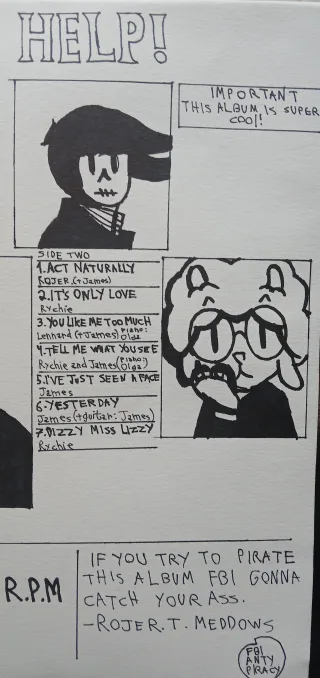 HELP!
IMPORTANT
THIS ALBUM IS SUPER
COOl!
SIDE TWO
1.ACT NATURALLY
ROJER (+James)
2.IT'S ONLY LOVE
Rychie
3.YOU LIKE ME TOO MUCH
Lennard (+James) piano: Olga
4.TELL ME WHAT YOU SEE
Rychie and James (piano: Olga)
5.I'VE JUST SEEN A FACE
James
6.YESTERDAY
James (+guitar: James)
7.DIZZY MISS LIZZY
Rychie
R.P.M
IF YOU TRY TO PIRATE
THIS ALBUM FBI GONNA
CATCH YOUR ASS.
-ROJER.T. MEDDOWS
FBI
ANTY
PIRACY